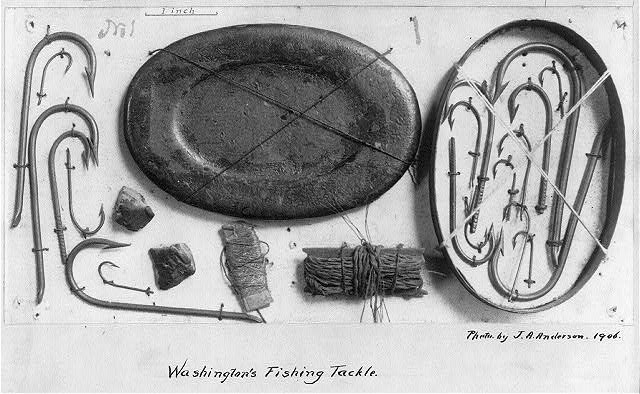 1 inch
Photo. by J.A. Anderson. 1906.
Washington's Fishing Tackle.